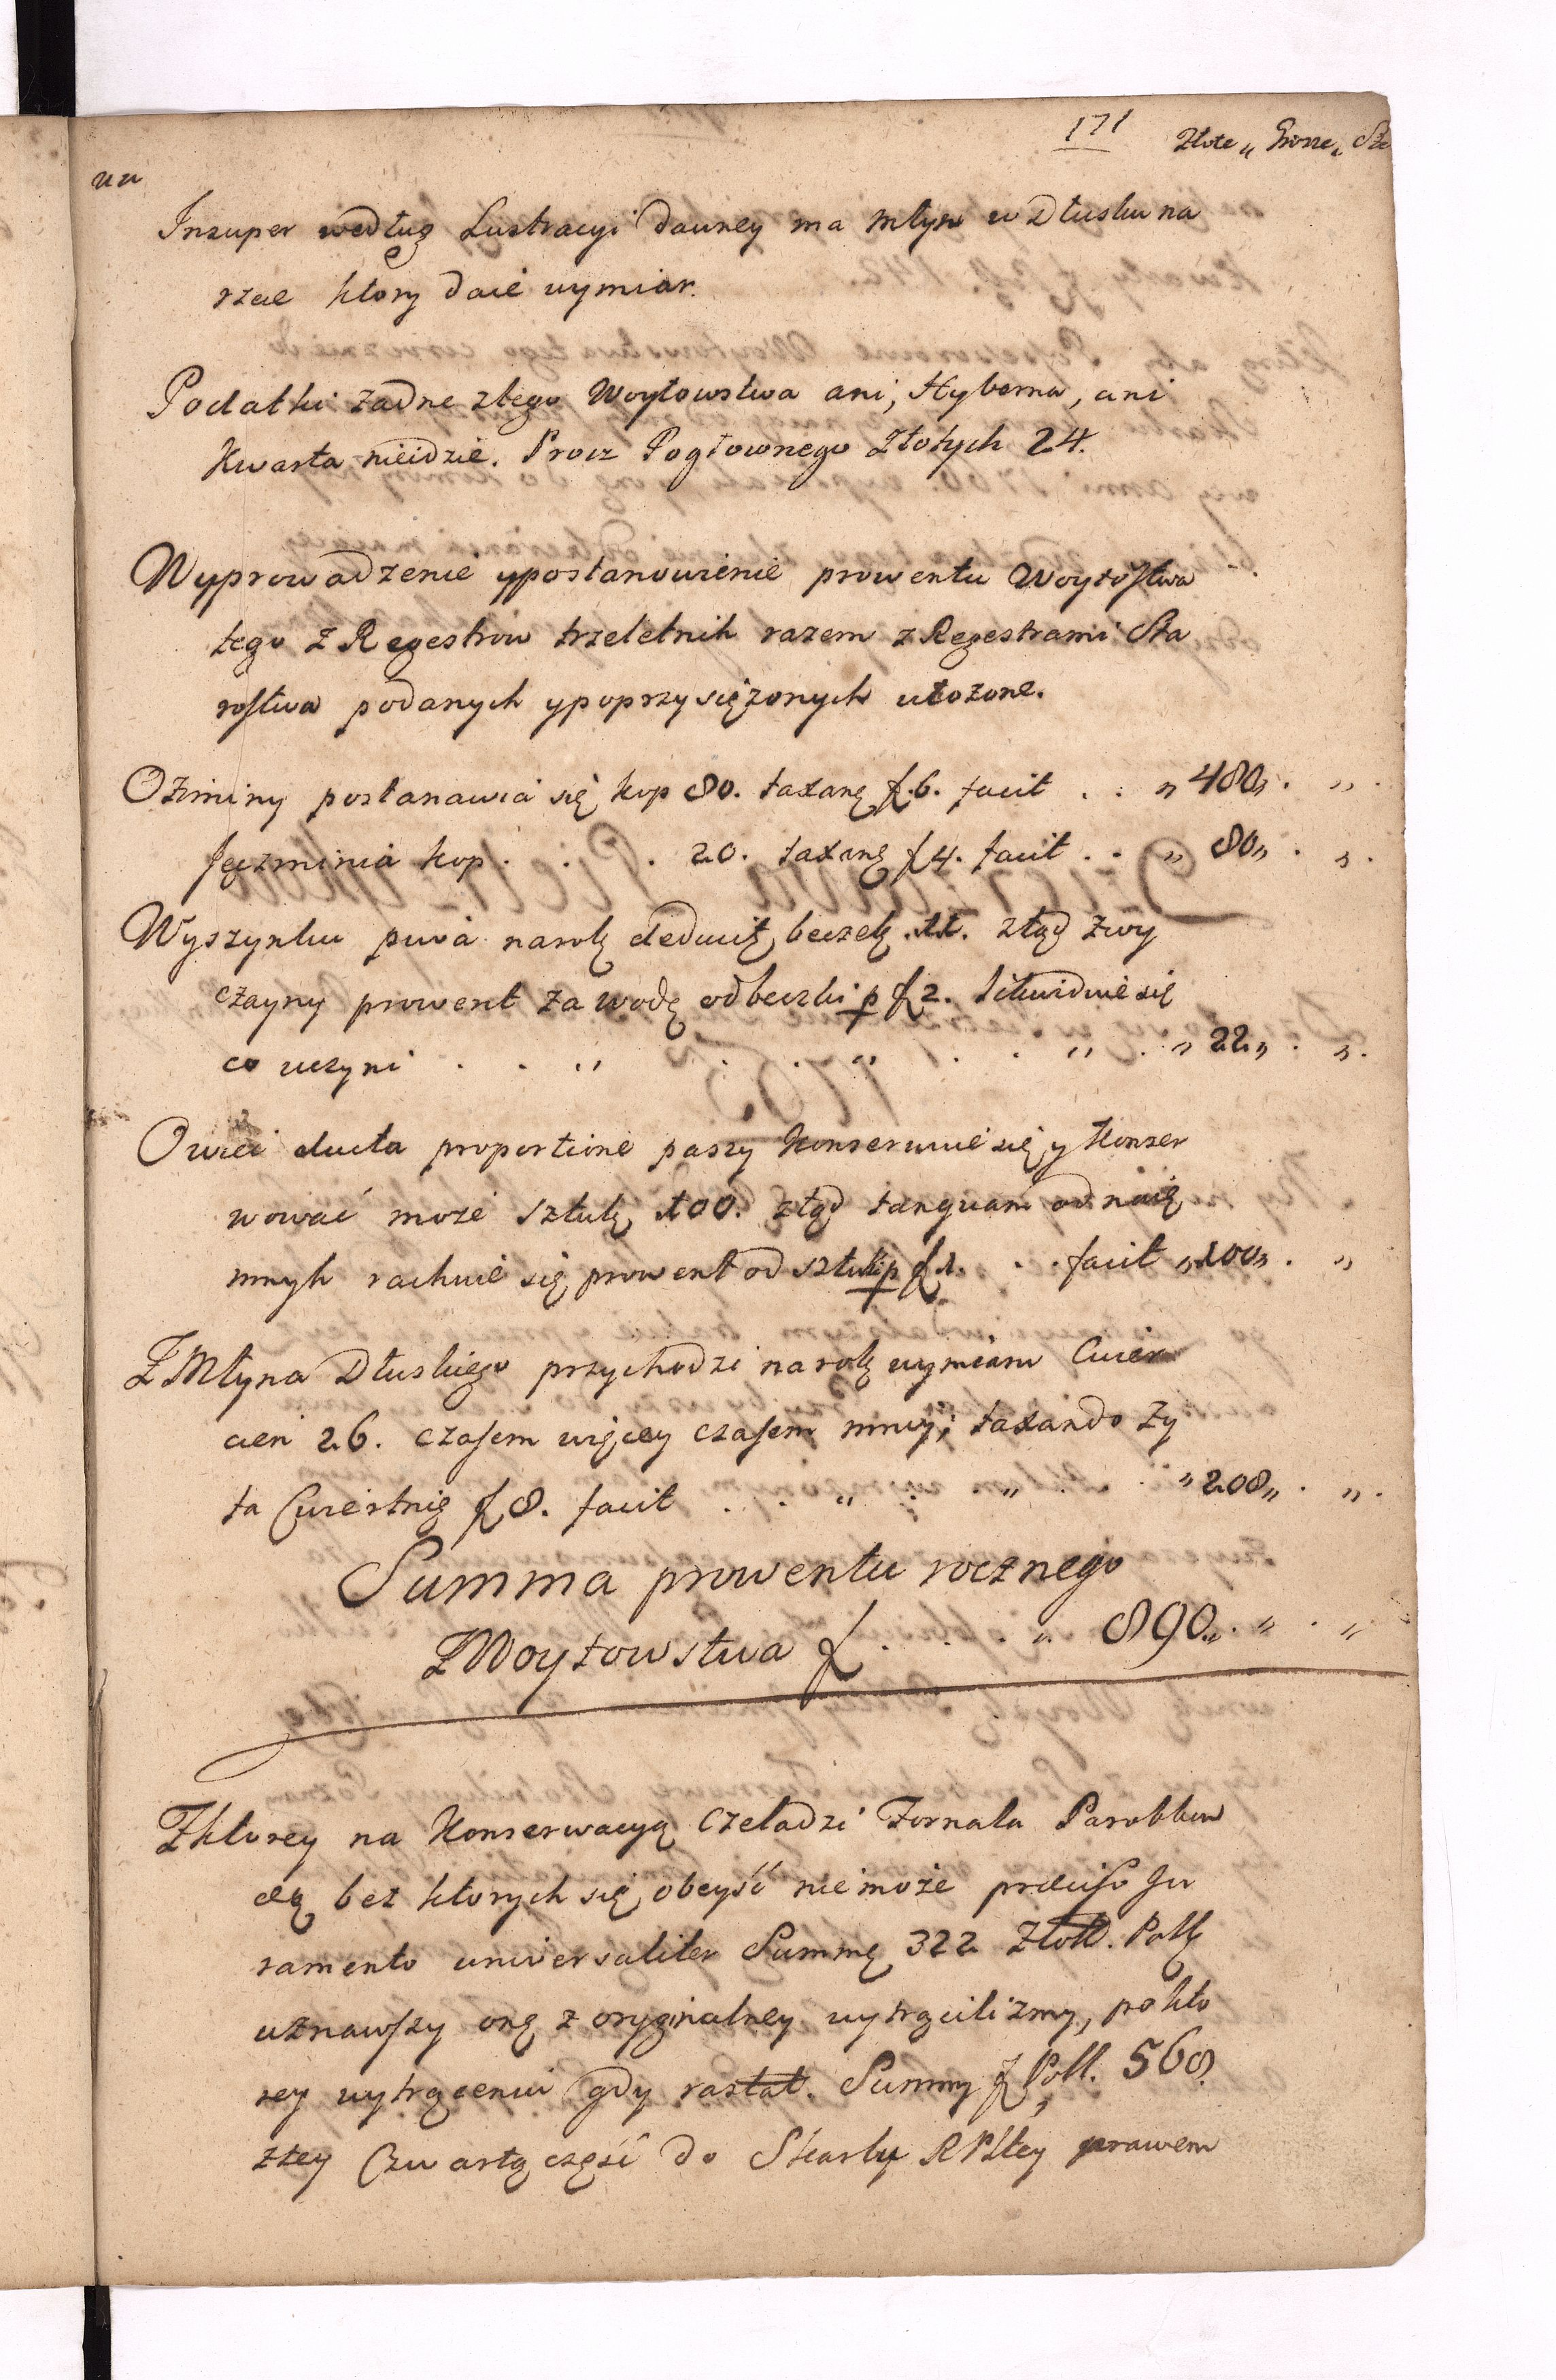 171
Złote „ Grosze „ Sze
Insuper według Lustracyi dawney ma Młyn w Dłusku na
rzece ktory daie wymiar.
Podatki zadne ztego Woytowstwa ani, Hyberna, ani
Kwarta nieidzie. Procz Pogłownego Złotych 24.
Wyprowadzenie ypostanowienie prowentu Woytostwa
tego z Regestrow trzeletnih razem z Regestrami Sta
rostwa podanych ypoprzysiężonych ułozone.
Oziminy postanawia się kop 80. taxanę f. 6. facit . . „ 480„ . „ .
Jęczminia kop . . . 20. taxanę f 4. facit . . „ 80„ . „ .
Wyszynku piwa narok deducię beczek 11. ztąd zwy
czayny prowent za wodę odbeczki p f 2. likwiduie się
co uczyni . . „ . . „ . . „ . „ 22„ . „ .
Owiec ducta proportione paszy Konserwuie się y Konser
wować może sztuk 100. ztąd tanquam od naię
mnyh rachuie się prowent od sztuki p f 1. . . facit „100„ . „
Z Młyna Dłuskiego przychodzi narok wymiaru Cwier
cien 26. czasem więcey czasem mniey; taxando Zy
ta Cwiertnię f 8. facit . . „ . „ . . „ 208„ . „ .
Summa prowentu rocznego
Z Woytowstwa f . . . „ 890„ . „ . „
Zktorey na Konserwacyą czeladzi Fornala Parobkow
etą bez ktorych się obeyść niemoże præuiso Ju
ramento universaliter Summę 322 Złott. Polł
uznawszy onę z oryginalney wytrąciliżmy, po kto
rey wytrąceniu gdy rastat. Summy f Poll. 568.
ztey Czwartą część do Skarbu RPltey prawem